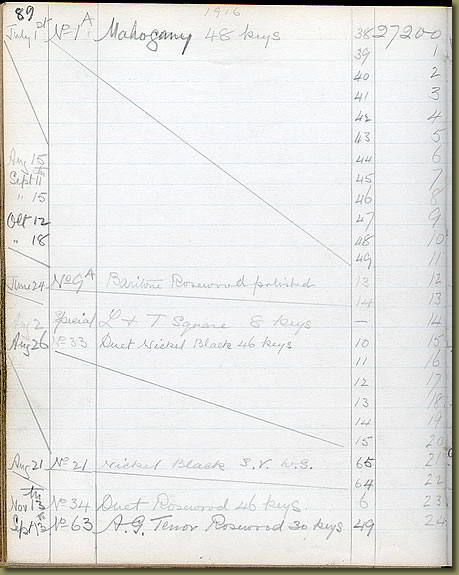 89 1916
July 1st No 1A Mahogany 48 keys 38 27200
39 1
40 2
41 3
42 4
43 5
Aug 15 44 6
Sept 11th 45 7
" 15 46 8
Oct 12 47 9
" 18 48 10
49 11
June 24 No 9A Baritone Rosewood polished 13 12
14 13
Aug 2 Special L & T Square 8 keys — 14
Aug 26 No 33 Duet Nickel Black 46 keys 10 15
11 16
12 17
13 18
14 19
15 20
Aug 21 No 21 Nickel Black S.V. W.S. 65 21
64 22
Nov 13th No 34 Duet Rosewood 46 keys. 6 23
Sept 13 No 63 A.G. Tenor Rosewood 30 keys 49 24